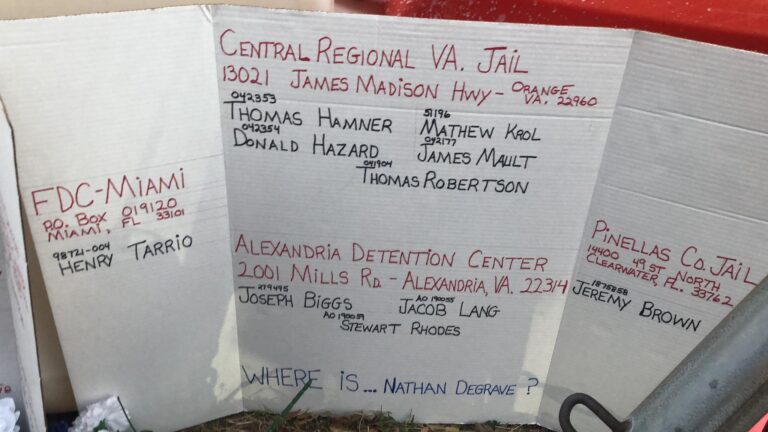 FDC-MIAMI
P.O. BOX 019120
MIAMI, FL 33101
98721-004
HENRY TARRIO
CENTRAL REGIONAL VA. JAIL
13021 JAMES MADISON HWY - ORANGE VA. 22960
042353
THOMAS HAMNER
51196
MATHEW KROL
042354
DONALD HAZARD
042177
JAMES MAULT
041904
THOMAS ROBERTSON
ALEXANDRIA DETENTION CENTER
2001 MILLS RD - ALEXANDRIA, VA. 22314
279495
JOSEPH BIGGS
A0 190055
JACOB LANG
A0 190059
STEWART RHODES
WHERE IS... NATHAN DEGRAVE ?
PINELLAS CO. JAIL
14400 49 ST NORTH
CLEARWATER, FL. 33762
1875858
JEREMY BROWN